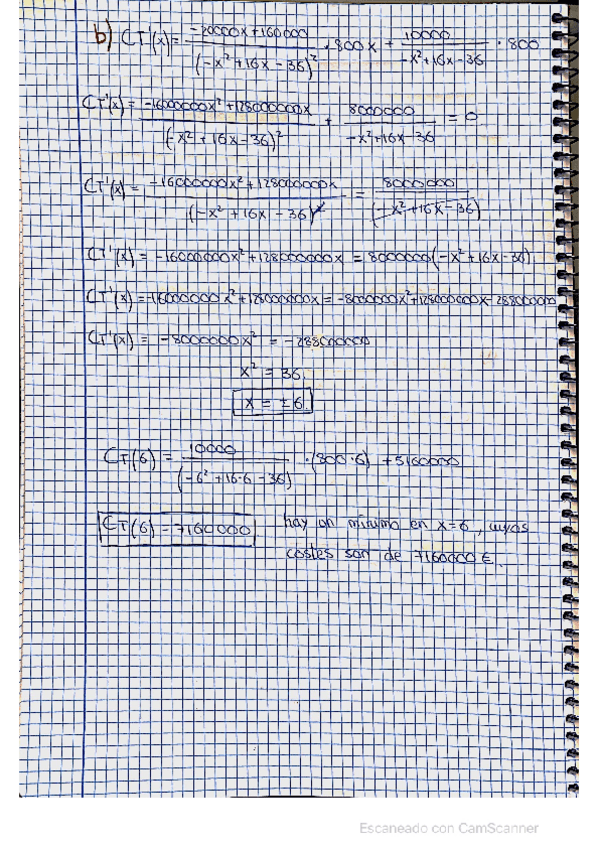 b) CT'(x) = \frac{-20000x+160000}{(-x²+16x-36)²} · 800x + \frac{10000}{-x²+16x-36} · 800
CT'(x) = \frac{-16000000x²+128000000x}{(-x²+16x-36)²} + \frac{8000000}{-x²+16x-36} = 0
CT'(x) = \frac{-16000000x²+128000000x}{(-x²+16x-36)²} = \frac{8000000}{(-x²+16x-36)}
CT'(x) = -16000000x²+128000000x = 8000000(-x²+16x-36)
CT'(x) = -16000000x²+128000000x = -8000000x²+128000000x-288000000
CT'(x) = -8000000x² = -288000000
x² = 36
x = ±6
CT(6) = \frac{10000}{(-6²+16·6-36)} · (800·6) + 5160000
CT(6) = 7160000 hay un mínimo en x=6, cuyos
costes son de 7160000 €.
Escaneado con CamScanner